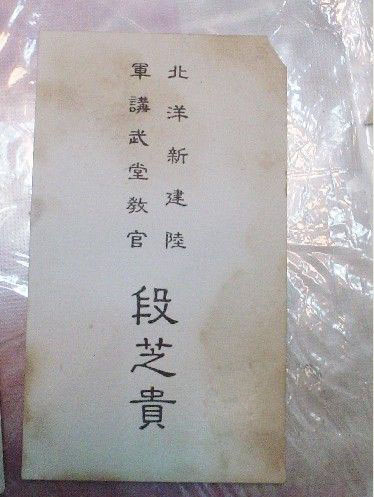 北洋新建陸
軍講武堂教官
段芝貴